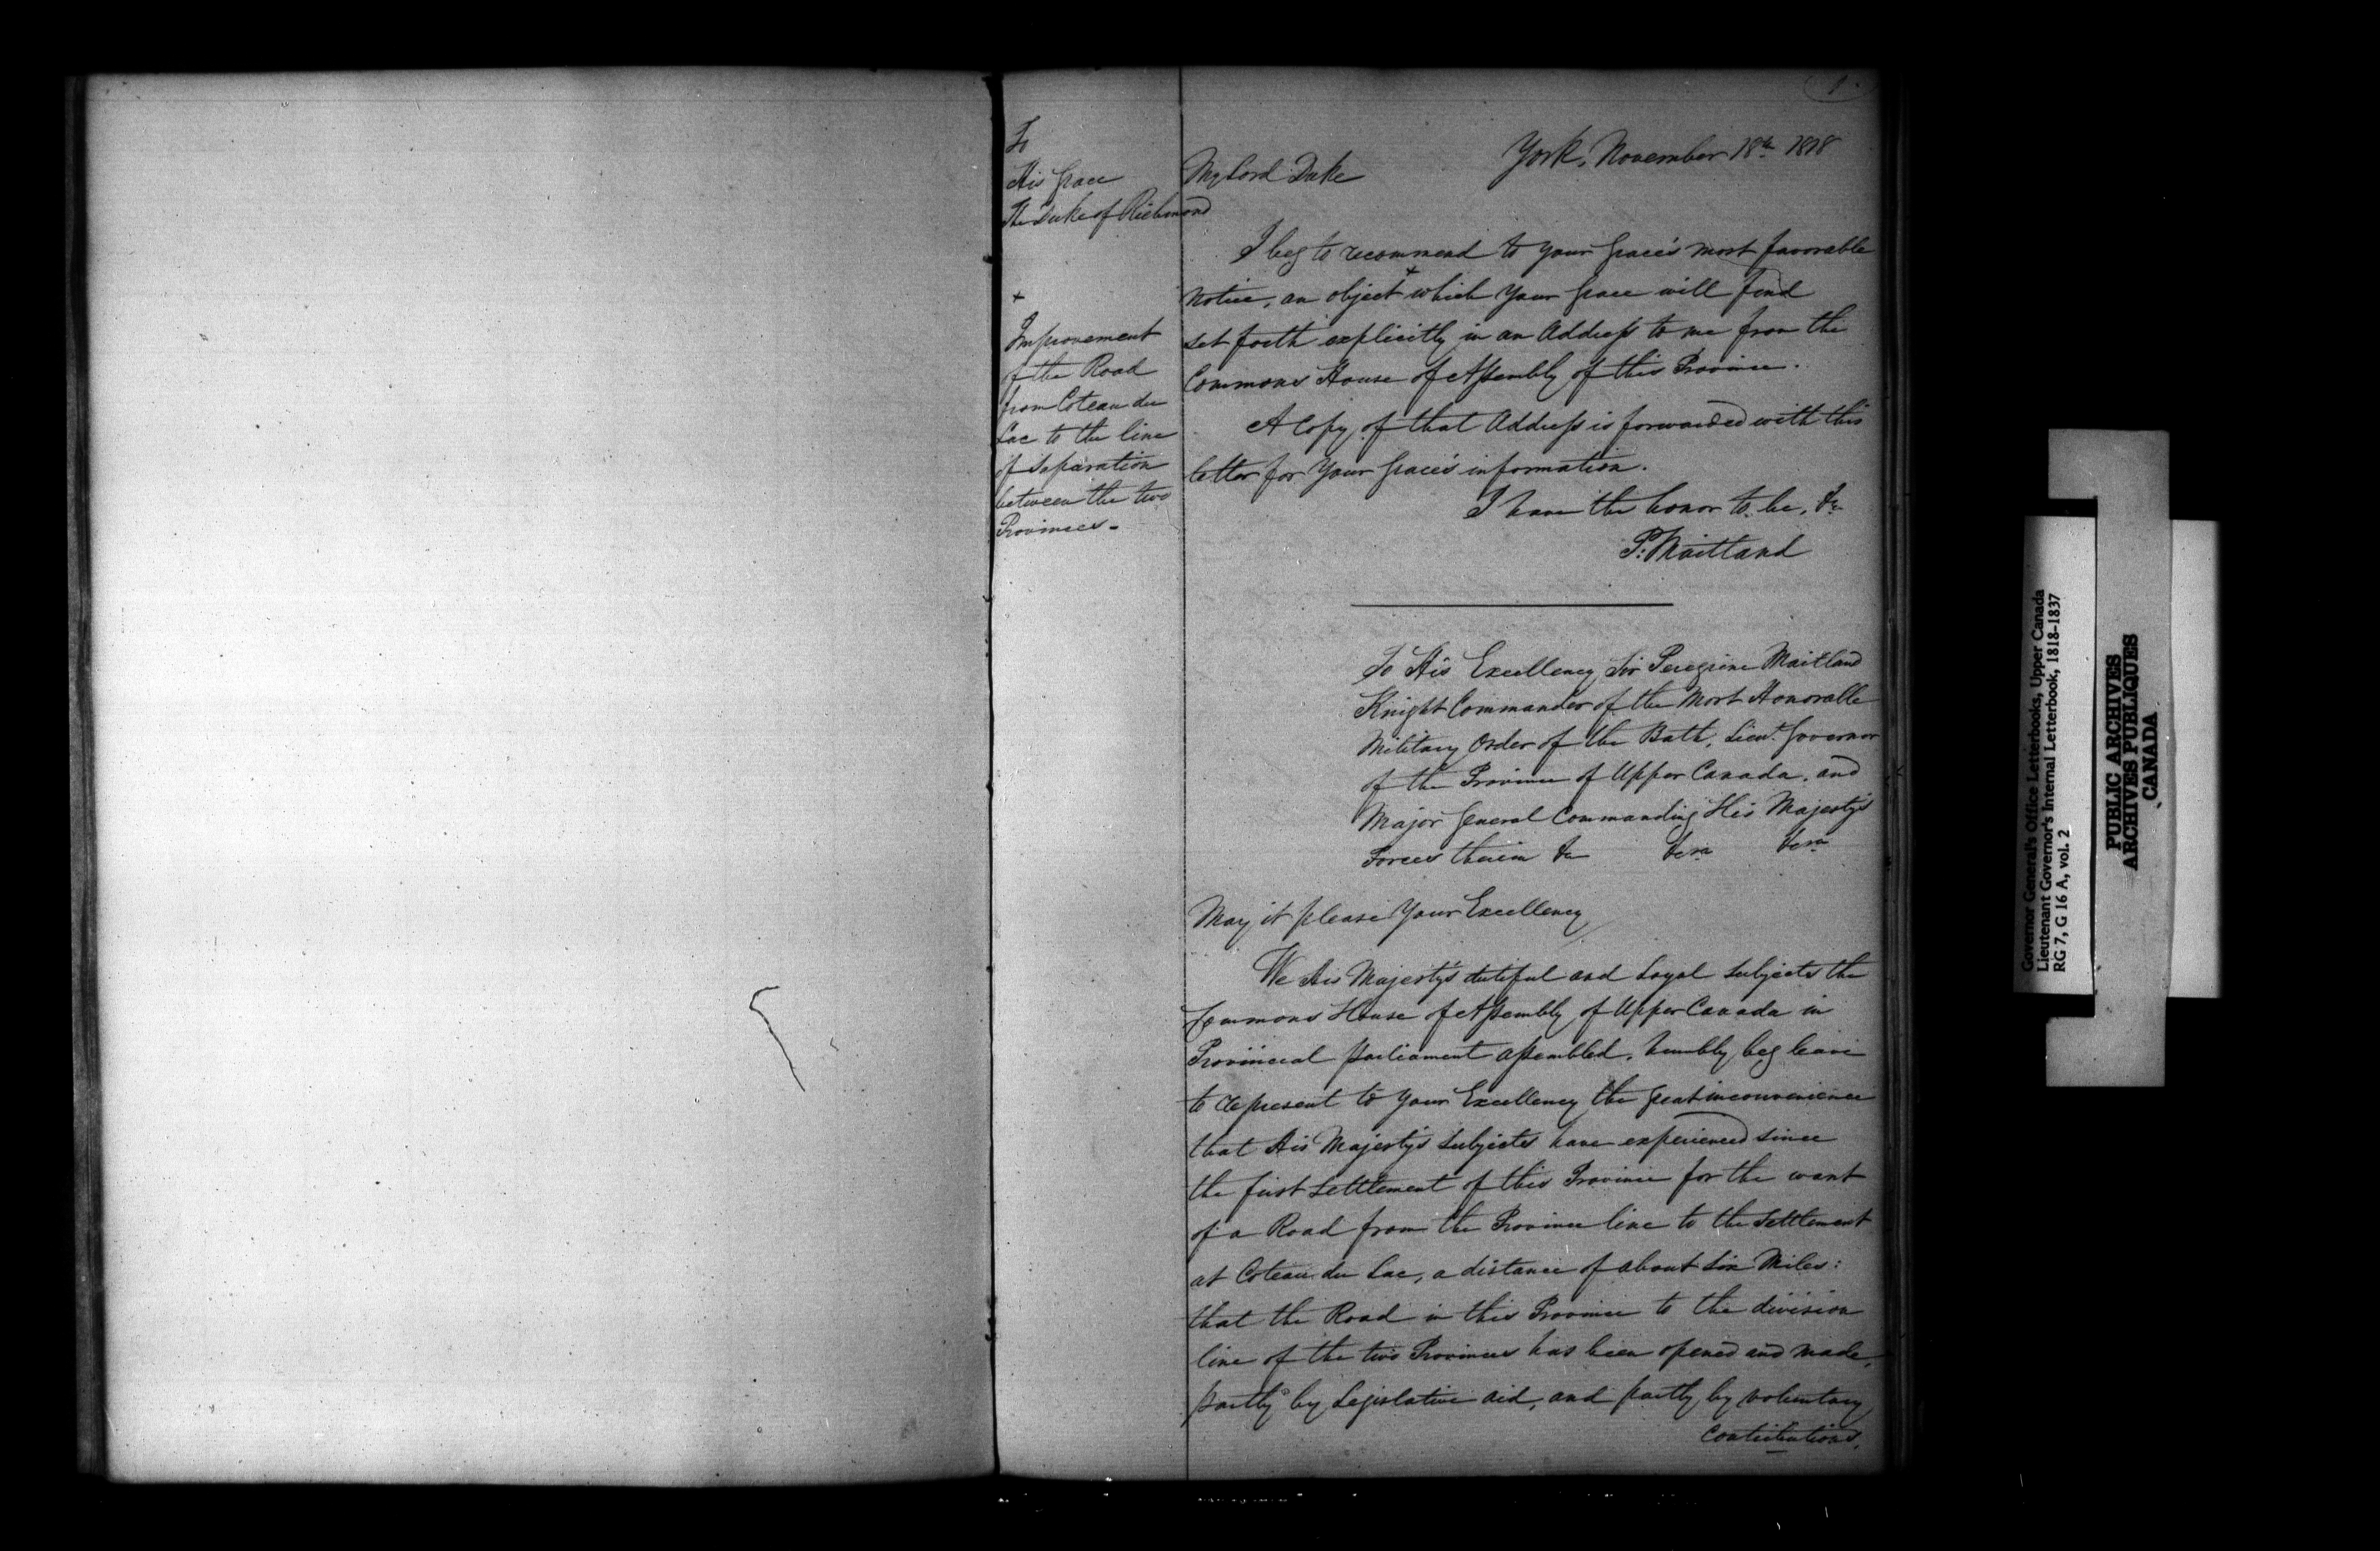 1.
To
His Grace
The Duke of Richmond
+
Improvement
of the Road
from Coteau du
Lac to the line
of Separation
between the two
Provinces -
York, November 18th 1818
My Lord Duke
I beg to recommend to Your Grace's most favorable
Notice, an object + which Your Grace will find
set forth explicitly in an Address to me from the
Commons House of Assembly of this Province.
A Copy of that Address is forwarded with this
letter for Your Grace's information.
I have the honor to be, &c
P: Maitland
To His Excellency Sir Peregrine Maitland
Knight Commander of the Most Honorable
Military Order of the Bath, Lieut. Governor
of the Province of Upper Canada, and
Major General Commanding His Majesty's
Forces therein &c &c &c
May it please Your Excellency
We His Majesty's dutiful and Loyal Subjects the
Commons House of Assembly of Upper Canada in
Provincial Parliament assembled, humbly beg leave
to represent to Your Excellency the great inconvenience
that His Majesty's Subjects have experienced since
the first Settlement of this Province for the want
of a Road from the Province line to the Settlement
at Coteau du Lac, a distance of about Six Miles:
that the Road in this Province to the division
line of the two Provinces has been opened and made,
partly by Legislative aid, and partly by voluntary
Contributions,
Governor General's Office Letterbooks, Upper Canada
Lieutenant Governor's Internal Letterbook, 1818-1837
RG 7, G 16 A, vol. 2
PUBLIC ARCHIVES
ARCHIVES PUBLIQUES
CANADA